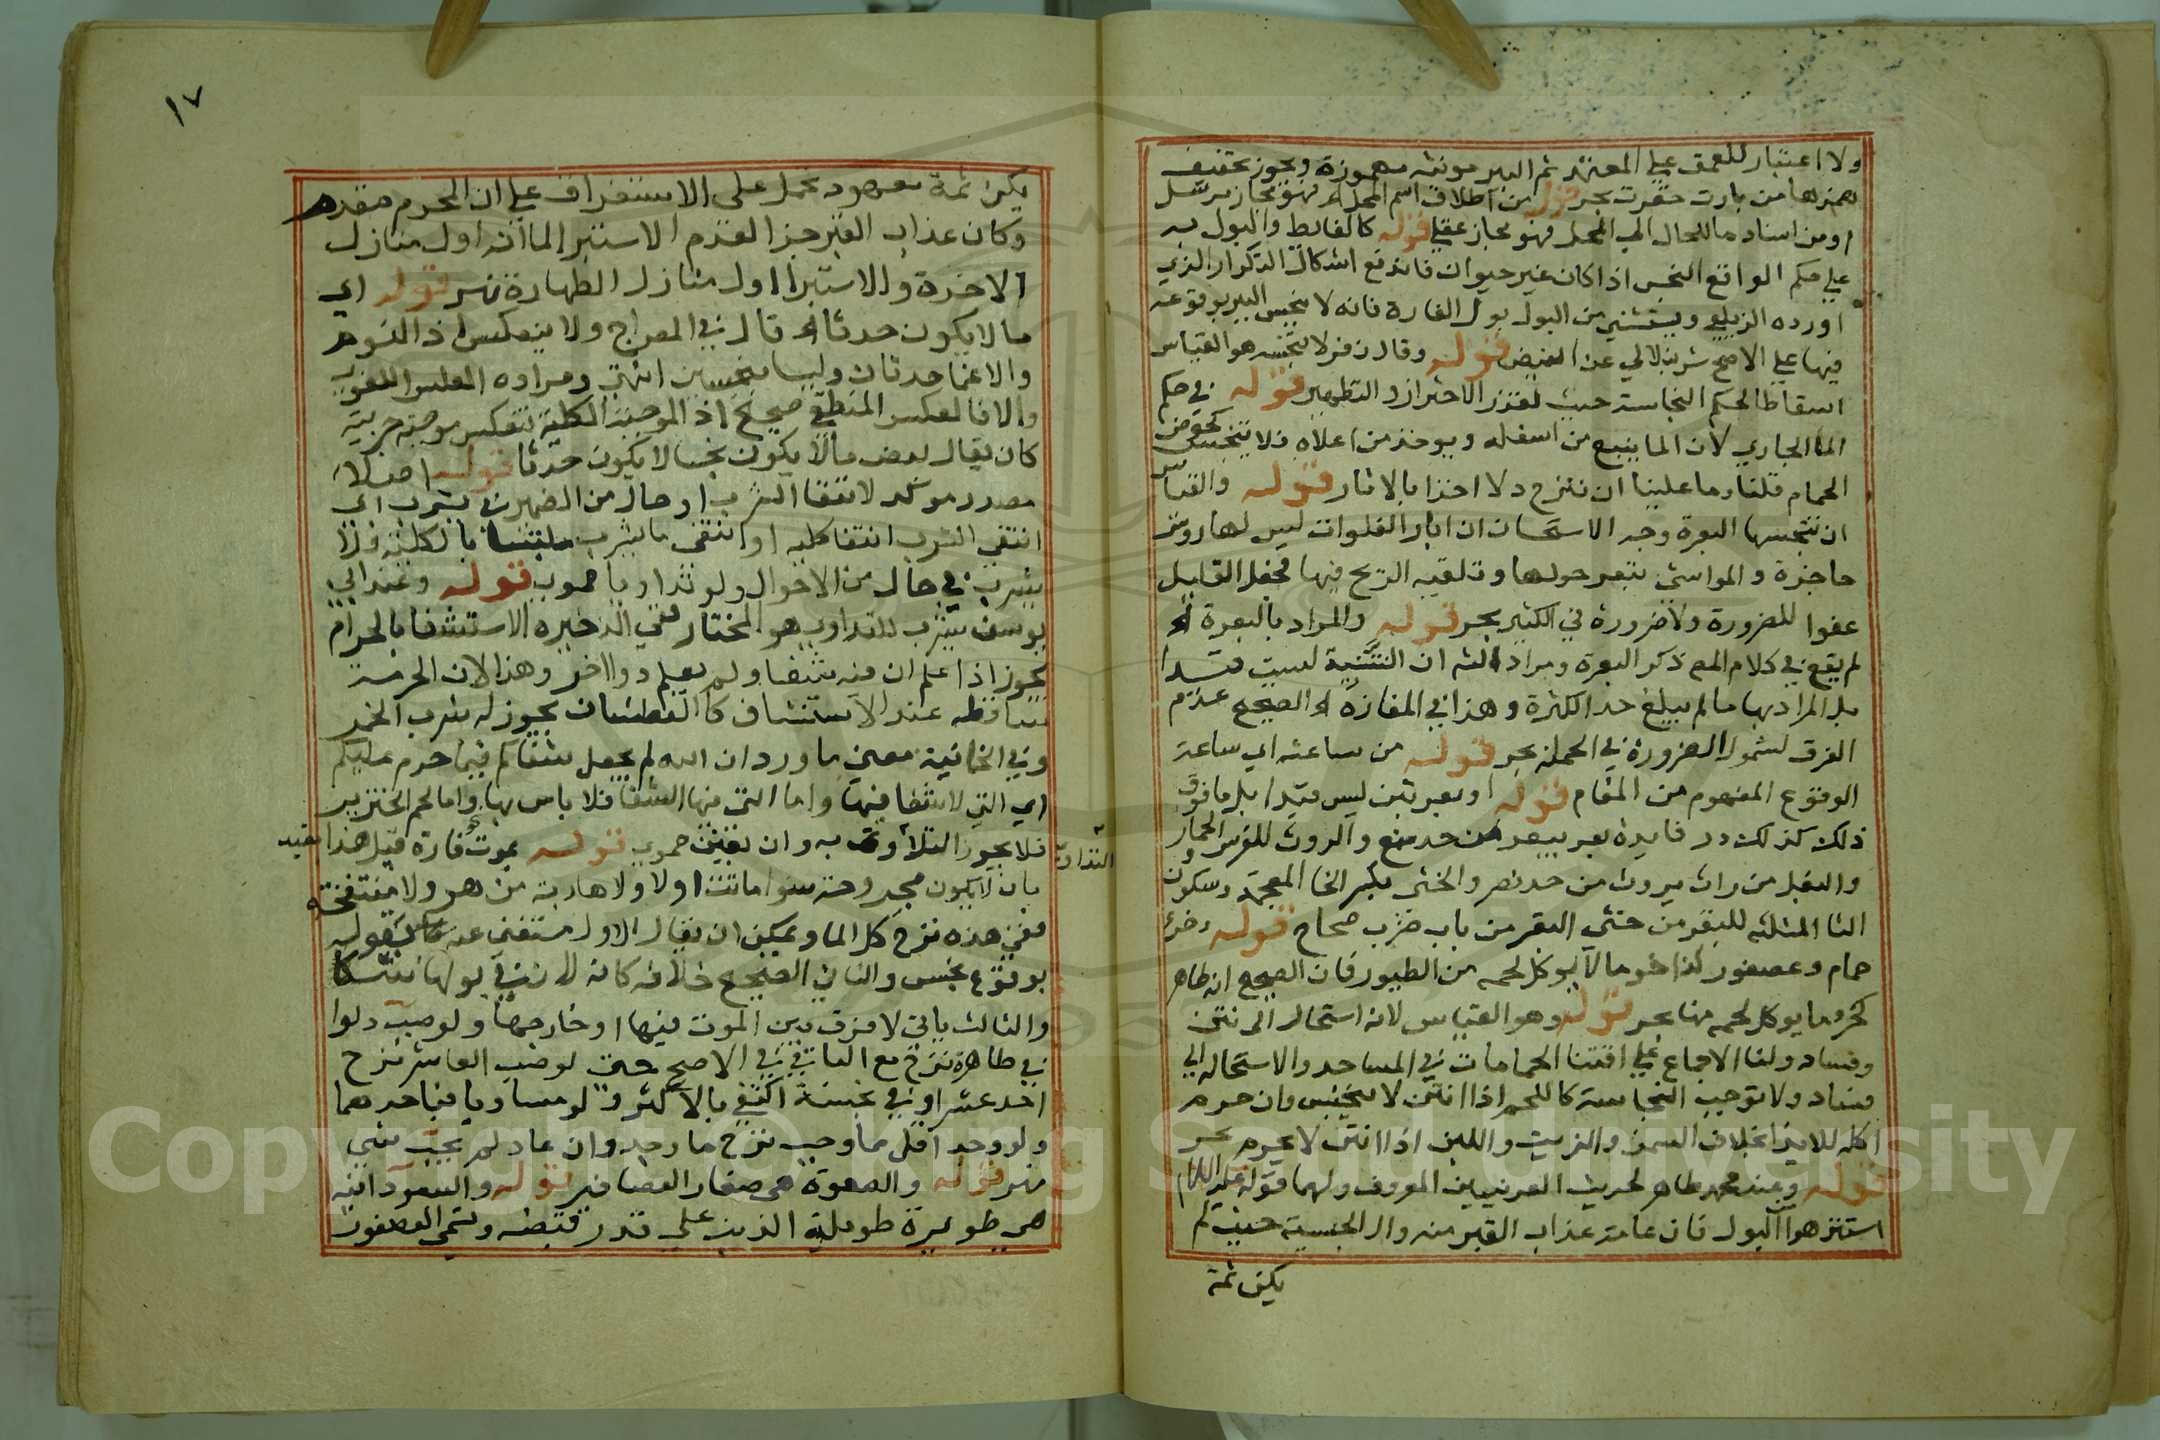 ولا اعتبار للعمق علي المعتمد ثم البير مونثه مهموزة ويجوز تخفيف
همزها من بارت حفرت بحر قوله من اطلاق اسم المحل فهو مجاز مرسل
او من اسناد ما للحال الي المحل فهو مجاز عقلي قوله كالغايط والبول به
علي حكم الواقع النجس اذا كان غير حيوان فاندفع اشكال التكرار الذي
اورده الزيلعي ويستثني من البول بول الفارة فانه لا ينجس البير بوقوعه
فيها علي الاصح شرنبلالي عن الفيض قوله وقال زفر لا تنجسه هو القياس
اسقاطا لحكم النجاسة حيث تعذر الاحتراز والتطهير قوله في حكم
الما الجاري لان الما ينبع من اسفله ويوخذ من اعلاه فلا يتنجس كحوض
الحمام قلنا وما علينا ان ننزح دلا اخذا بالاثار قوله والقياس
ان تنجسها البعرة وجه الاستحسان ان ابار الفلوات ليس لها روس
حاجزة والمواشي تبعر حولها وتلقيه الريح فيها فجعل القليل
عفوا للضرورة ولا ضرورة في الكثير بحر قوله والمراد بالبعرة
لم يقع في كلام المص ذكر البعرة ومراد الش ان التثنية ليست قيدا
بل المراد بها ما لم يبلغ حد الكثرة وهذا في المفازة والصحيح عدم
الفرق لشمول الضرورة في الجملة بحر قوله من ساعته اي ساعة
الوقوع المفهوم من المقام قوله او بعرتين ليس قيدا بل ما فوق
ذلك كذلك درر فايدة بعر يبعر من حد منع والروث للفرس والحمار
والبغل من راث يروث من حد نصر والخثي بكسر الخا المعجمة وسكون
الثا المثلثه للبقر من خثي البقر من باب ضرب صحاح قوله وخرء
حمام وعصفور كذا خرو ما لا يوكل لحمه من الطيور فان الصحيح انه طاهر
كخرو ما يوكل لحمه منها بحر قوله وهو القياس لانه استحال الي نتن
وفساد ولنا الاجماع علي اقتنا الحمامات في المساجد والاستحاله الي
فساد ولا توجب النجاسة كاللحم اذا انتن لا ينجس وان حرم
اكله للايذا بخلاف السمن والزيت واللبن اذا انتن لا يحرم بحر
قوله وعند محمد طاهر لحديث العرنيين المعروف ولهما قوله عليه السلام
استنزهوا البول فان عامة عذاب القبر منه وال الجنسية حيث لم
يكن ثمة
١٧
يكن ثمة معهود تحمل على الاستغراف علي ان المحرم مقدم
وكان عذاب القبر جزا لعدم الاستبرا لما انه اول منازل
الاخرة والاستبرا اول منازل الطهارة نهر قوله اي
ما لا يكون حدثا الخ قال في المعراج ولا ينعكس اذ النوم
والاغما حدثان وليسا بنجسين انتهي ومراده العكس اللغوي
والا فالعكس المنطقي صحيح اذ الموجبة الكلية تنعكس موجبة جزيية
كان يقال بعض ما لا يكون نجسا لا يكون حدثا قوله اصلا
مصدر موكد لانتفا الشرب او حال من الضمير في يشرب اي
انتفي الشرب انتفا كليا او انتفي ما يشرب ملتبسا بالكلية فلا
يشرب في حال من الاحوال ولو تداويا حموي قوله وعند ابي
يوسف يشرب للتداوي هو المختار ففي الذخيرة الاستشفا بالحرام
يجوز اذا علم ان فيه شفا ولم يعلم دوا اخر وهذا لان الحرمة
ساقطه عند الاستشفاف كالعطشان يجوز له شرب الخمر
وفي الخانية معني ما ورد ان الله لم يجعل شفاكم فيما حرم عليكم
اي التي لا شفا فيها واما التي فيها الشفا فلا باس بها واما لحم الخنزير
فلا يجوز التداوي به وان تعين حموي قوله بموت فارة قيل هذا مقيد
التداوي
بان لا يكون مجروحة سوا ماتت اولا ولا هاربة من هر ولا منتفخة
ففي هذه نزح كل الما ويمكن ان يقال الاول مستغني عنه بقوله
بوقوع نجس والثاني الصحيح خلافه كانه لان في بولها شكا
والثالث ياتي لا فرق بين الموت فيها او خارجها ولو صب دلوا
في طاهرة نزح مع الباقي في الاصح حتي لو صب العاشر نزح
احد عشر او في نجسة اكتفي بالاكثر ولو تساويا فباحدهما
ولو وجد اقل مما وجب نزح ما وجد وان عاد لم يجب شي
نهر قوله والصعوة هي صغار العصافير قوله والسودانية
هي طويرة طويلة الذنب علي قدر قبضه وتسمي العصفور